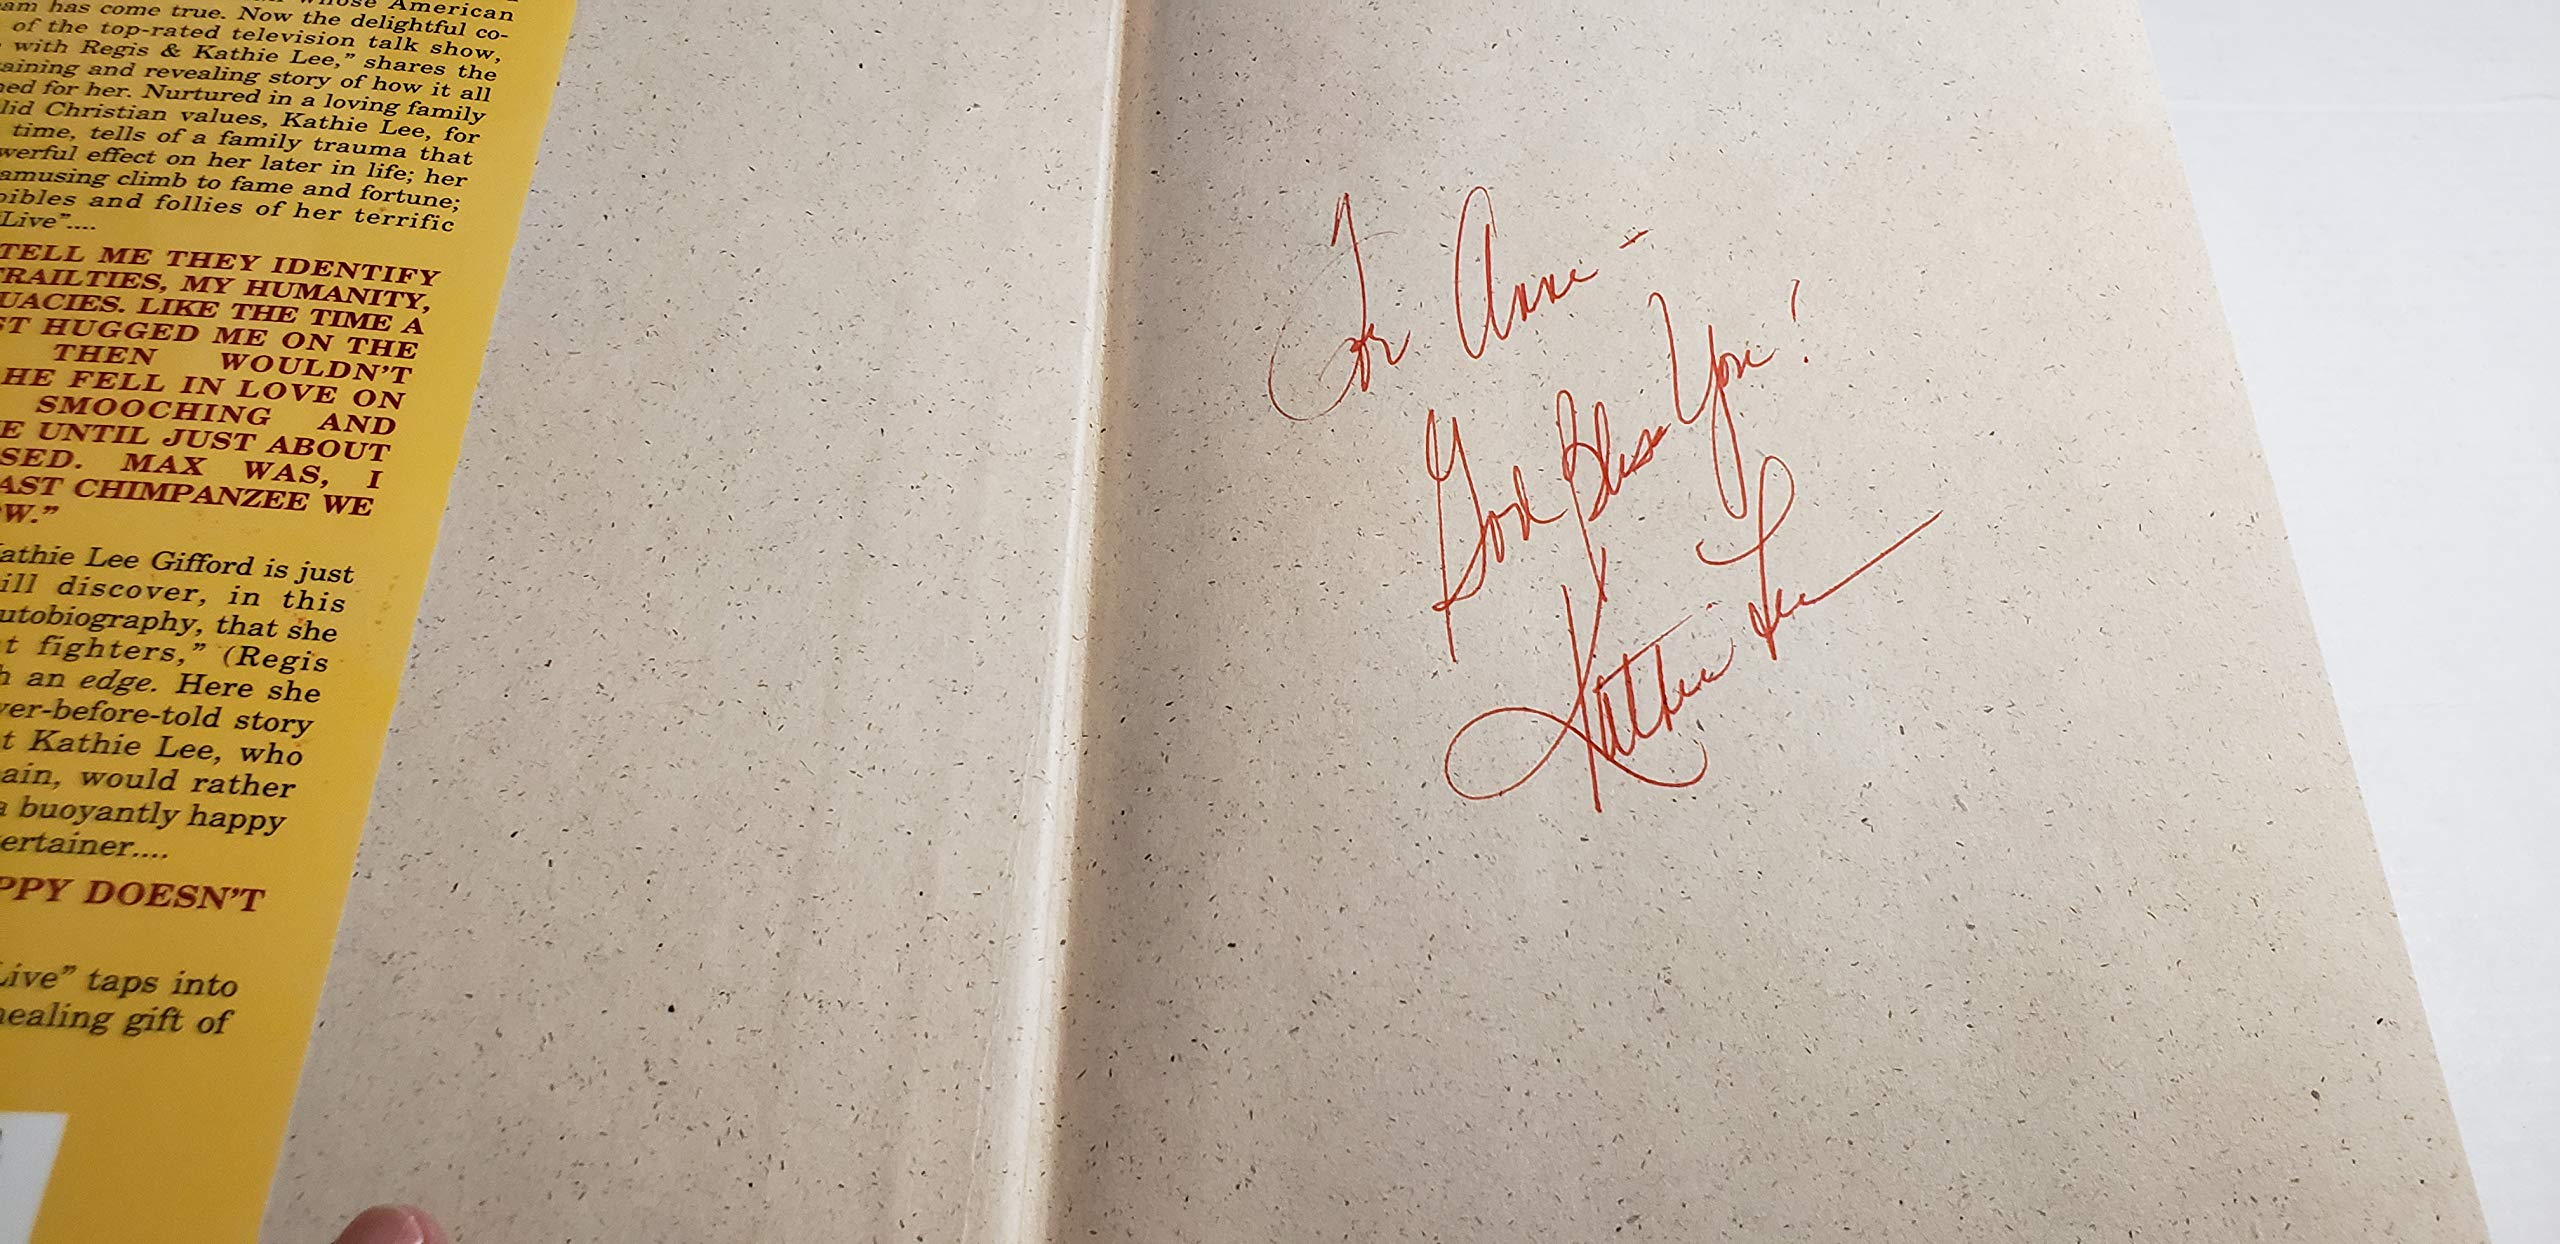 whose American
am has come true. Now the delightful co-
of the top-rated television talk show,
with Regis & Kathie Lee," shares the
aining and revealing story of how it all
ned for her. Nurtured in a loving family
lid Christian values, Kathie Lee, for
time, tells of a family trauma that
werful effect on her later in life; her
amusing climb to fame and fortune;
oibles and follies of her terrific
"Live"....
TELL ME THEY IDENTIFY
FRAILTIES, MY HUMANITY,
UACIES. LIKE THE TIME A
ST HUGGED ME ON THE
THEN WOULDN'T
HE FELL IN LOVE ON
SMOOCHING AND
E UNTIL JUST ABOUT
SED. MAX WAS, I
AST CHIMPANZEE WE
W."
athie Lee Gifford is just
ill discover, in this
utobiography, that she
t fighters," (Regis
h an edge. Here she
ver-before-told story
t Kathie Lee, who
ain, would rather
a buoyantly happy
ertainer....
PPY DOESN'T
Live" taps into
healing gift of
For Anne -
God Bless You!
Kathie Lee